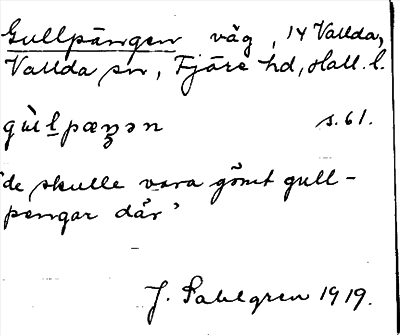 Gullpängen väg, 14 Vallda,
Vallda sn, Fjäre hd, Hall. l.
gùl̠pæŋən s. 61.
"de skulle vara gömt gull-
pengar där"
J. Sahlgren 1919.